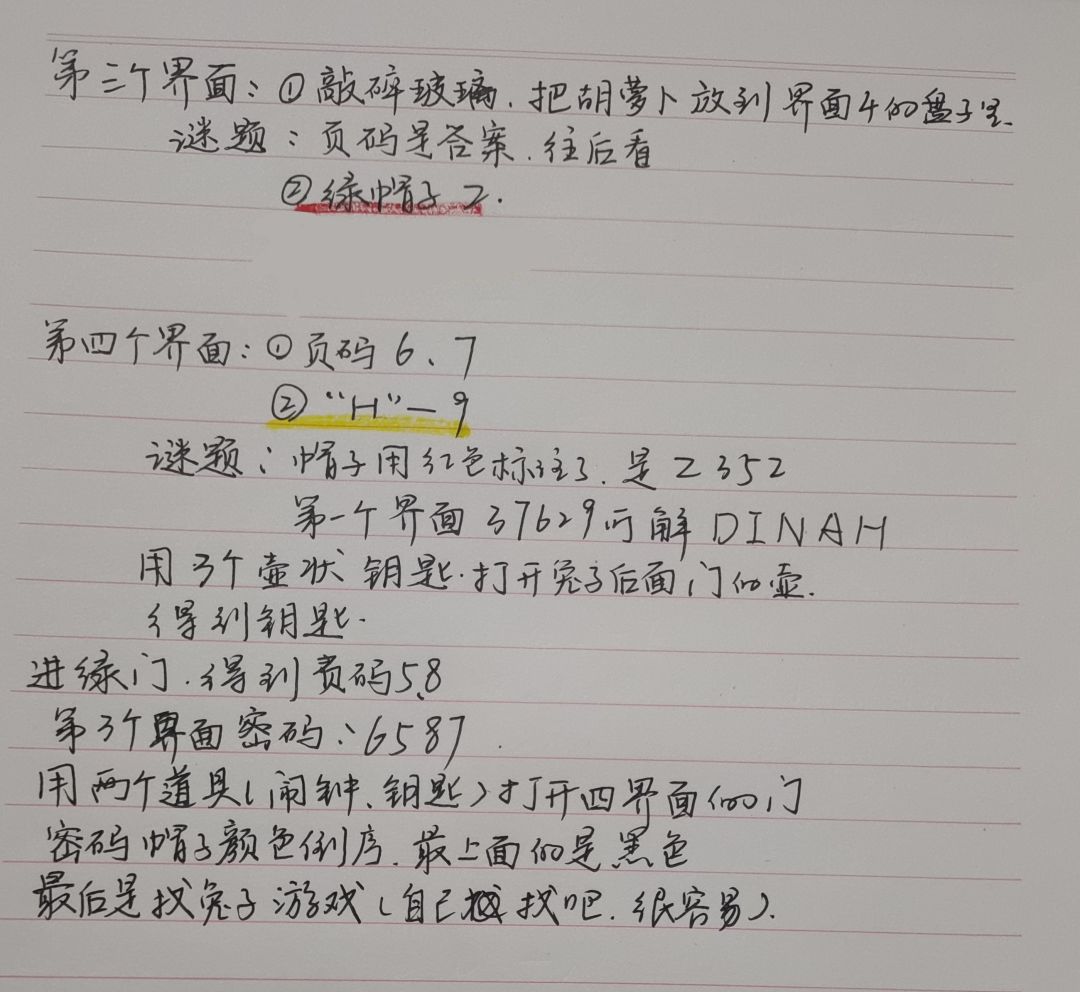 第三个界面：①敲碎玻璃．把胡萝卜放到界面4的盘子里．
谜题：页码是答案．往后看
②绿帽子2．
第四个界面：①页码6、7
②“H”—9
谜题：帽子用红色标注了．是2352
第一个界面37629可解DINAH
用3个壶状钥匙．打开兔子后面门的壶．
得到钥匙．
进绿门．得到页码5、8
第3个界面密码：6587．
用两个道具（闹钟、钥匙）打开四界面的门
密码帽子颜色倒序．最上面的是黑色
最后是找兔子游戏（自己找吧．很容易）．